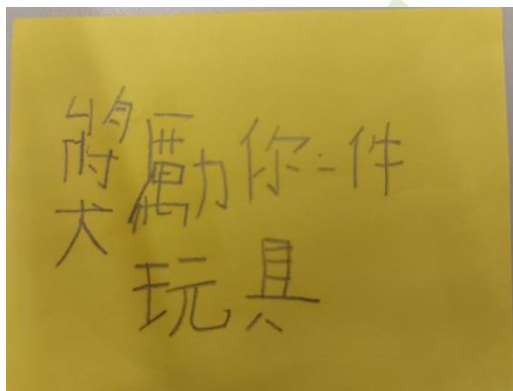 獎勵你：一件
玩具